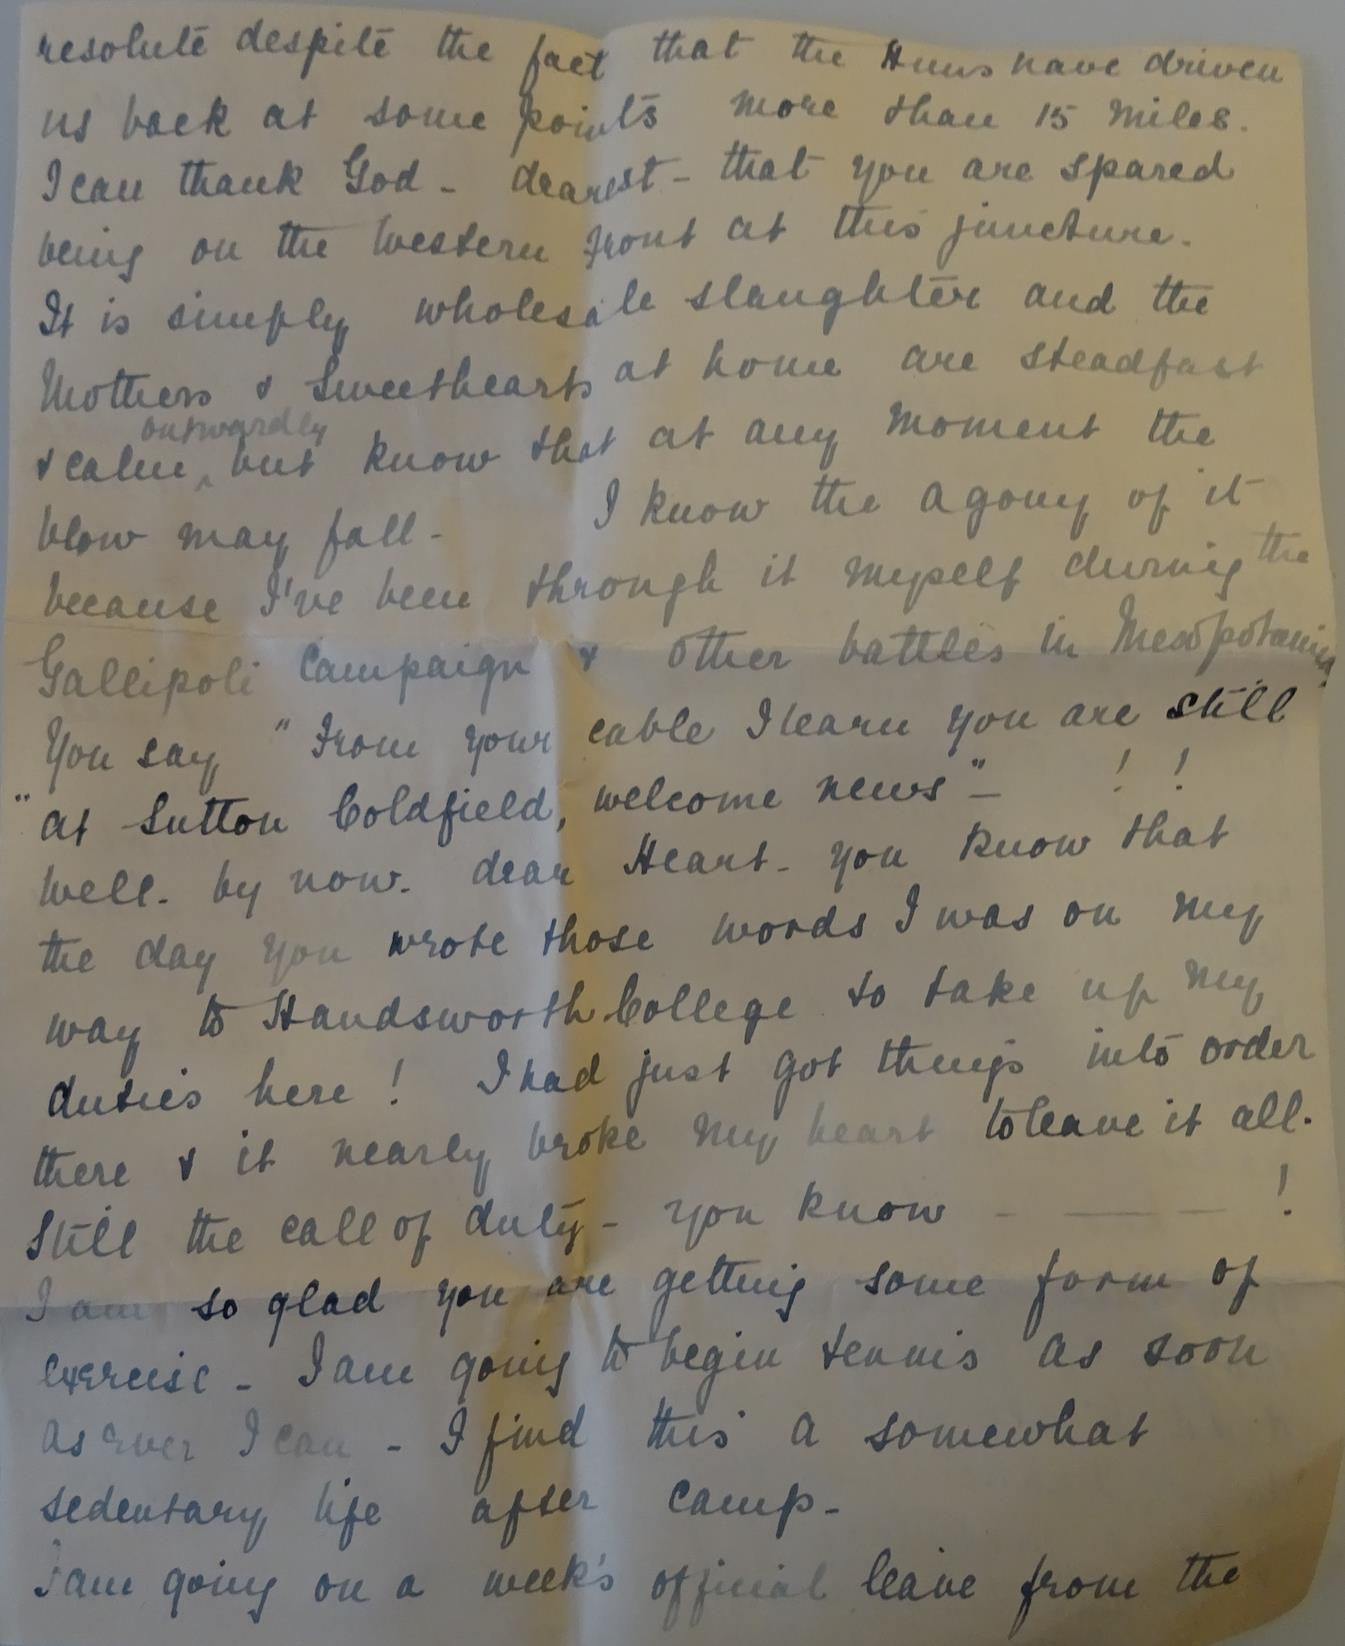 resolute despite the fact that the Huns have driven
us back at some points more than 15 miles.
I can thank God - dearest - that you are spared
being on the Western Front at this juncture.
It is simply wholesale slaughter and the
Mothers & Sweethearts at home are steadfast
outwardly
& calm ^ but know that at any moment the
blow may fall - I know the agony of it
because I've been through it myself during the
Gallipoli Campaign & other battles in Mesopotamia.
You say "From your cable I learn you are still
"at Sutton Coldfield, welcome news" - ! !
Well - by now - dear Heart - you know that
the day you wrote those words I was on my
way to Handsworth College to take up my
duties here ! I had just got things into order
there & it nearly broke my heart to leave it all.
Still the call of duty - you know - — — !
I am so glad you are getting some form of
exercise - I am going to begin tennis as soon
as ever I can - I find this a somewhat
sedentary life after camp -
I am going on a week's official leave from the